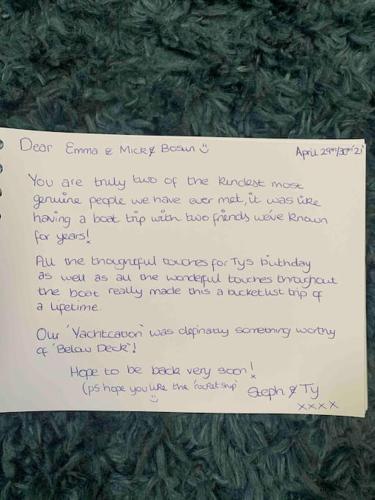 Dear Emma & Mick & Bosun ☺ April 29th/30th 21
You are truly two of the kindest most
genuine people we have ever met, it was like
having a boat trip with two friends we've known
for years!
All the thoughtful touches for Ty's birthday
as well as all the wonderful touches throughout
the boat really made this a bucketlist trip of
a lifetime.
Our 'Yachtcation' was definatly something worthy
of 'Below Deck'!
Hope to be back very soon!
(ps hope you like the 'rocket ship'
☺
Steph & Ty
xxxx